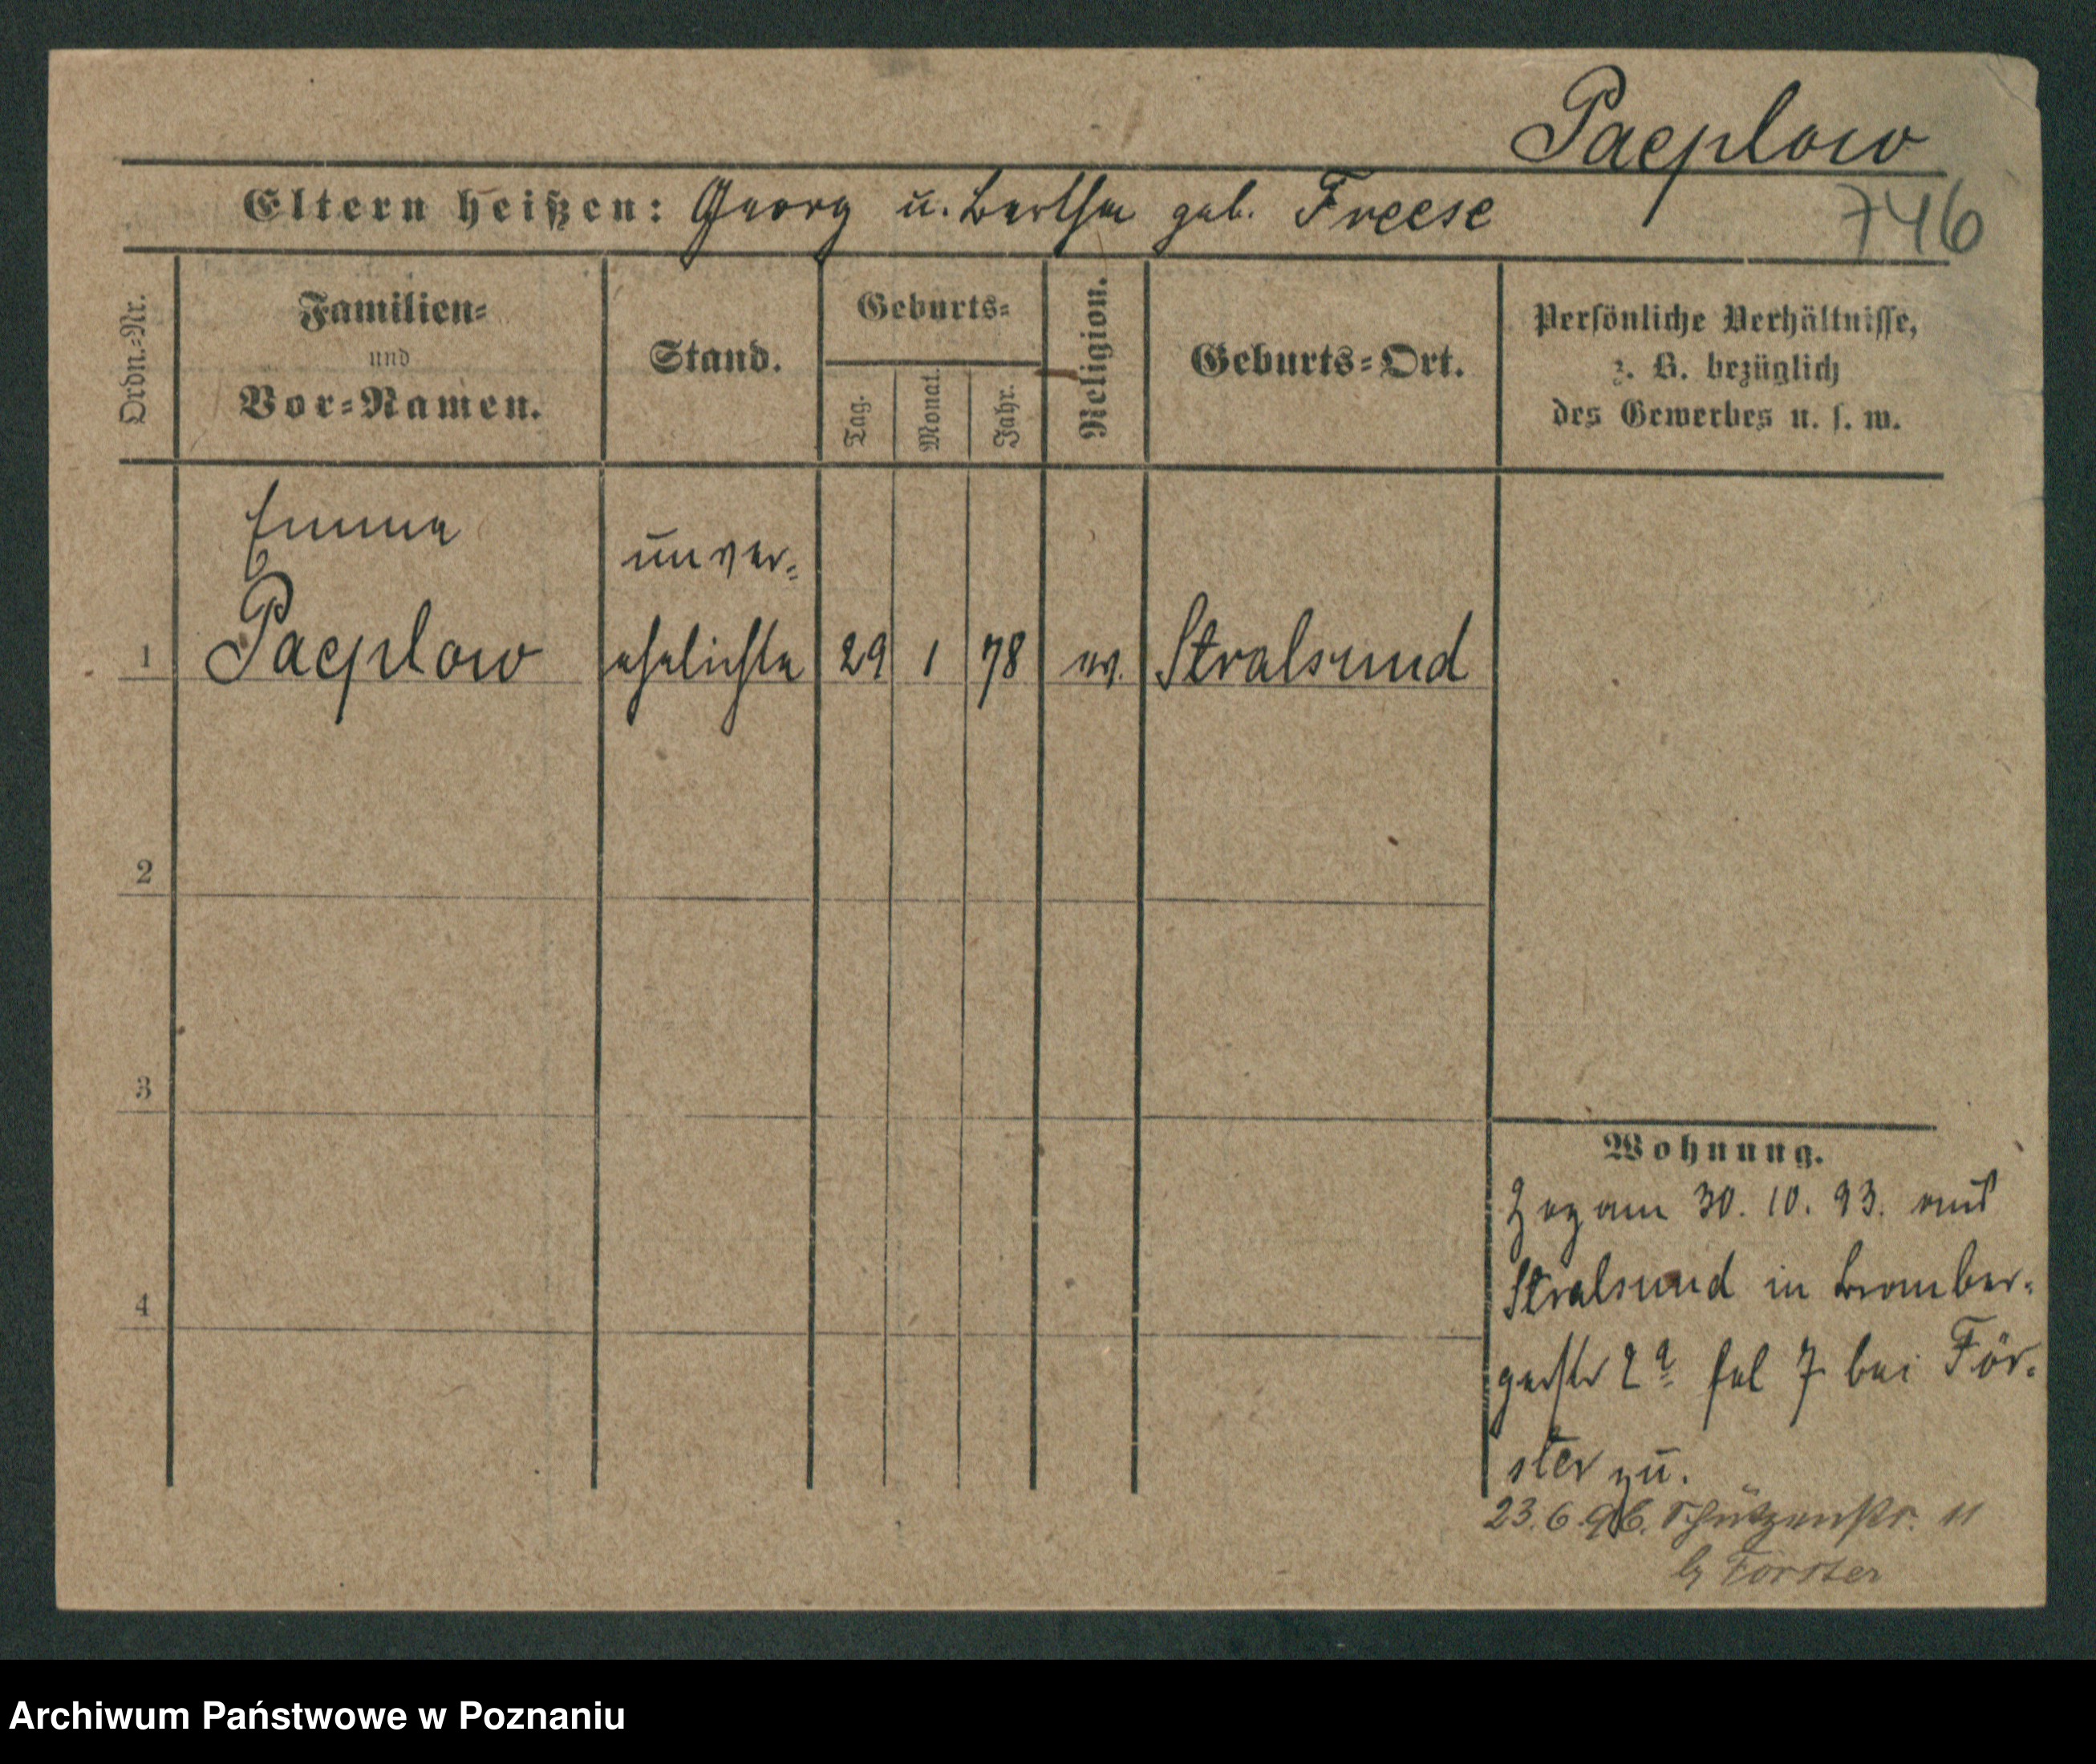 Paeplow
Eltern heißen: Georg u. Bertha geb. Freese
746
Ordn.-Nr.
Familien-
und
Vor-Namen.
Stand.
Geburts-
Tag.
Monat.
Jahr.
Religion.
Geburts-Ort.
Persönliche Verhältnisse,
z. B. bezüglich
des Gewerbes u. s. w.
Emma
unver-
1 Paeplow ehelichte 29 1 78 ev. Stralsund
2
3
4
Wohnung.
Zog am 30. 10. 93. aus
Stralsund in Bromber-
gerstr 2a bei För-
ster zu.
23.6.96. Schützenstr. 11
b Förster
Archiwum Państwowe w Poznaniu